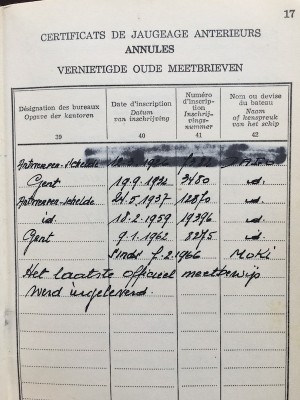 17
CERTIFICATS DE JAUGEAGE ANTERIEURS
ANNULES
VERNIETIGDE OUDE MEETBRIEVEN
Désignation des bureaux
Opgave der kantoren
Date d'inscription
Datum van inschrijving
Numéro d'inscription
Inschrijvingsnummer
Nom ou devise du bateau
Naam of kenspreuk van het schip
39 40 41 42
Antwerpen-Schelde
Gent 19.9.1932 3480 id.
Antwerpen-Schelde 24.5.1937 12870 id.
id. 18.2.1959 19396 id.
Gent 9.1.1962 8275 id.
Sinds 7.2.1966 MOKI
Het laatste officieel meetbewijs
werd ingeleverd.